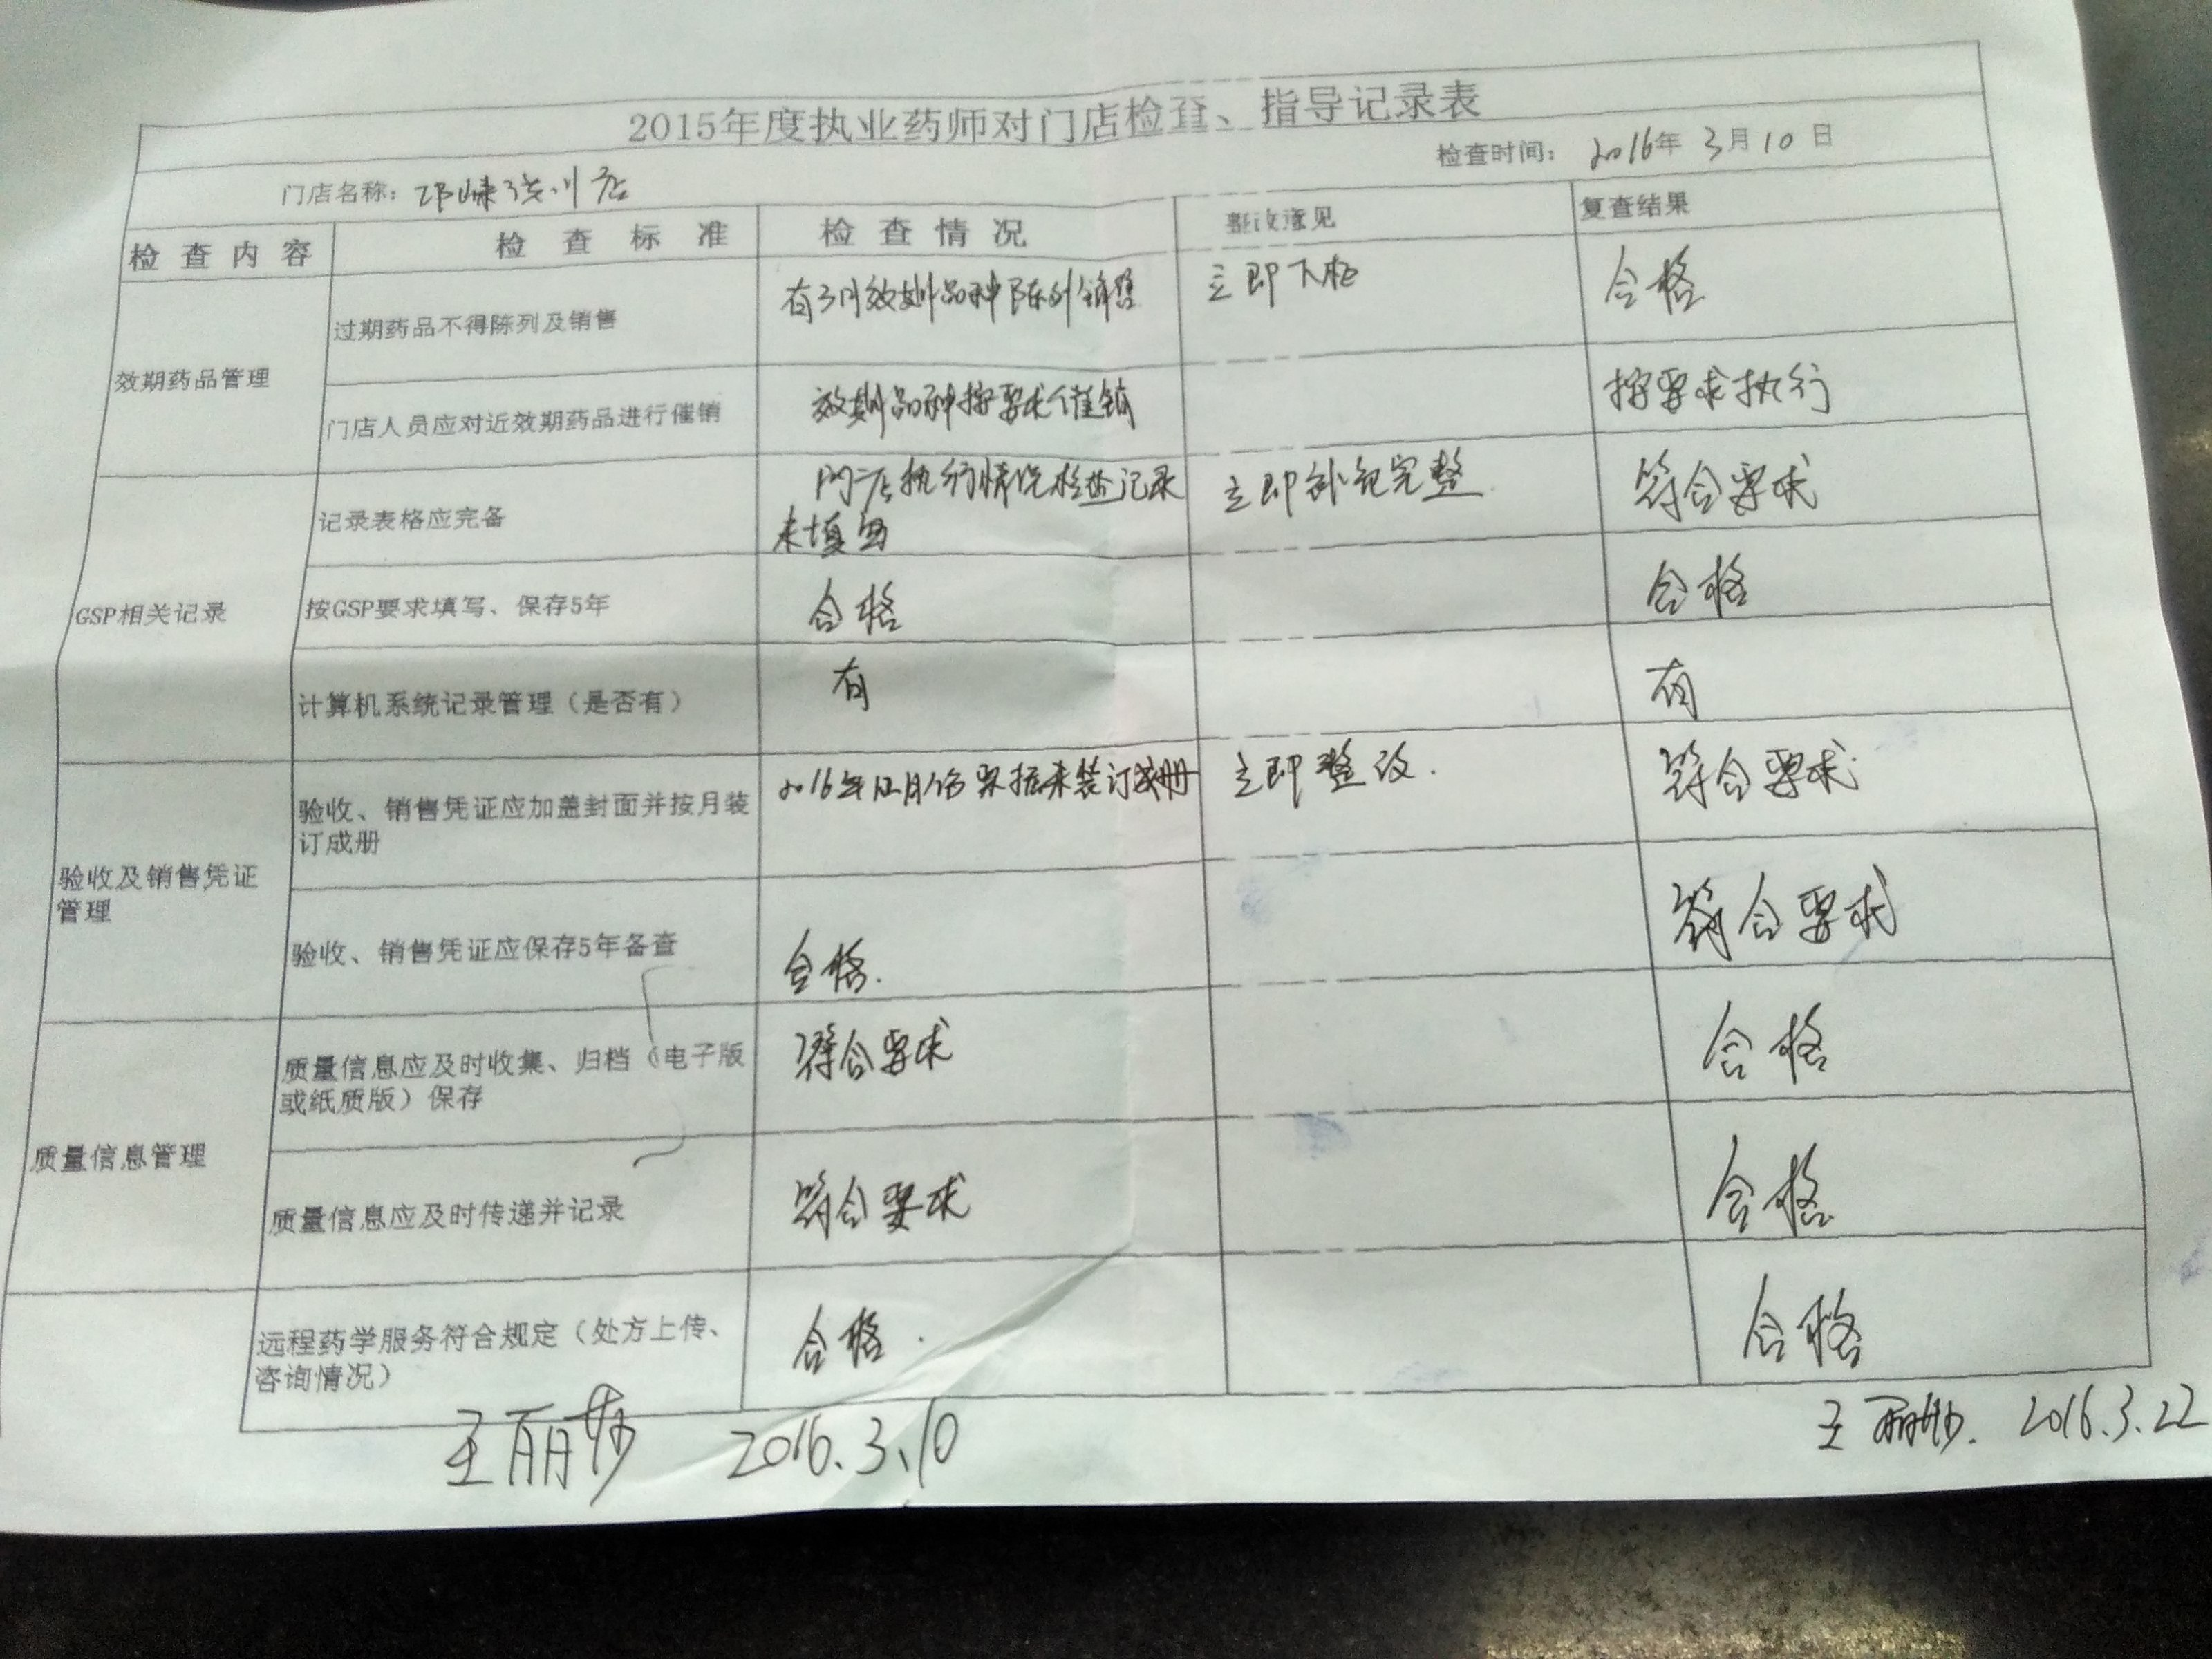 2015年度执业药师对门店检查、指导记录表
门店名称：邛崃洪川店 检查时间： 2016年 3月10日
检查内容 检查标准 检查情况 整改意见 复查结果
效期药品管理
过期药品不得陈列及销售 有3月效期品种陈列销售 立即下柜 合格
门店人员应对近效期药品进行催销 效期品种按要求催销 按要求执行
GSP相关记录
记录表格应完备 门店执行情况检查记录 立即补充完整 符合要求
未填写
按GSP要求填写、保存5年 合格 合格
计算机系统记录管理（是否有） 有 有
验收及销售凭证
管理
验收、销售凭证应加盖封面并按月装 票据未装订成册 立即整改. 符合要求
订成册
验收、销售凭证应保存5年备查 合格. 符合要求
质量信息管理
质量信息应及时收集、归档（电子版 符合要求 合格
或纸质版）保存
质量信息应及时传递并记录 符合要求 合格
远程药学服务符合规定（处方上传、 合格. 合格
咨询情况）
王丽莎 2016.3.10 王丽莎. 2016.3.22